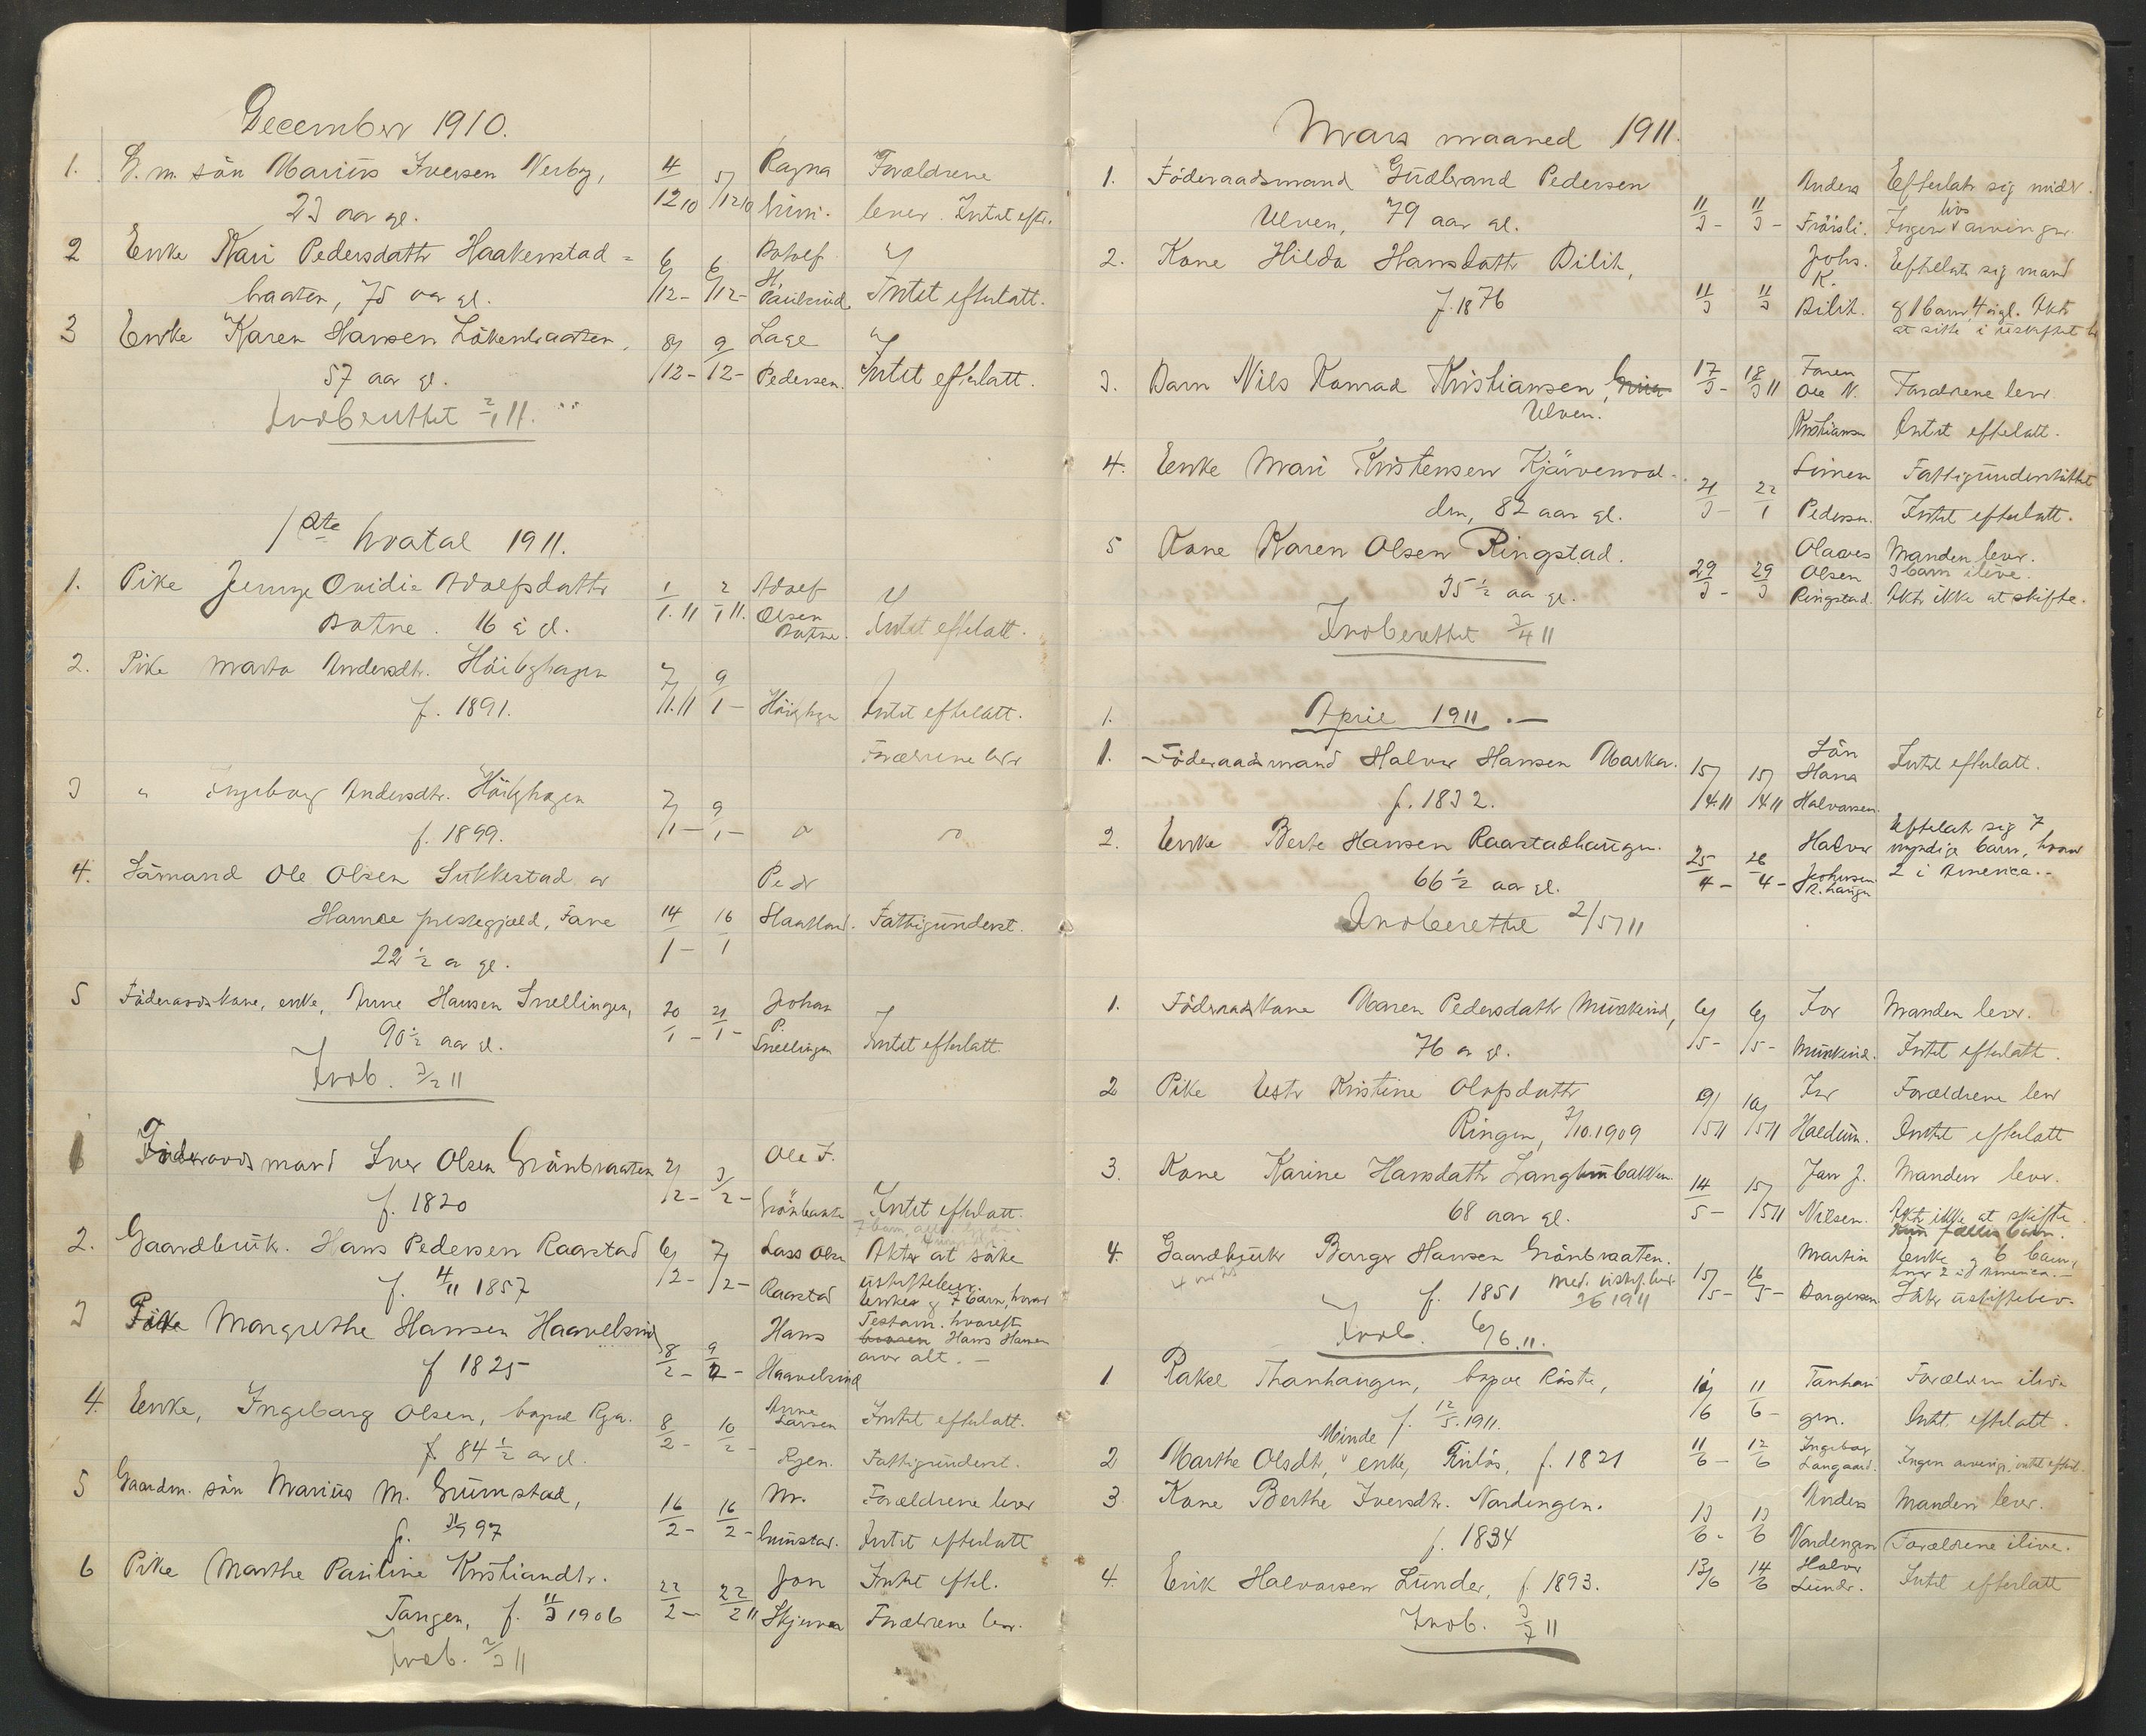 December 1910.
1. G. m. sön Marius Iversen Nerby, 4/12 10 5/12 10 Ragna Forældrene
23 aar gl. lever. Intet eft.
2 Enke Kari Pedersdattr Haakenstad= 6/12- 6/12- H. "
braaten, 75 aar gl. Intet efterlatt.
3 Enke Karen Hansen Lökenbraaten, 8/12- 9/12- Lage "
57 aar gl. Pedersen. Intet efterlatt.
Indberettet 2/1 11.
1ste kvatal 1911.
1. Pike Jenny Ovidia Adolfsdattr 1/1.11 2/1 11. Adolf "
Botne. 16 å gl. Olsen Botne. Intet efterlatt.
2. Pike Marta Andersdtr. Höibyhagen 7/1.11 9/1-
f. 1891. Höibyhagen Intet efterlatt.
Forældrene lever
3 " Ingeborg Andersdtr. Höibyhagen 7/1- 9/1-
f. 1899. " "
4. Sömand Ole Olsen Sukkestad av Peder
Hamre prestegjæld, Fane 14/1- 16/1 Fattigunderst.
22 1/2 a gl.
5 Föderaadskone, enke, Anne Hansen Snellingen, 20/1- 21/1- Johan "
90 1/2 aar gl. P. Snellingen Intet efterlatt.
Indb. 3/2 11
1 Föderaadsmand Iver Olsen Grönbraaten 2/2- 3/2- Ole I.
f. 1820 Grönbraaten Intet efterlatt.
2. Gaardbruk. Hans Pedersen Raastad 6/2- 7/2- Lars Olsen Akter at söke
f. 4/11 1857 Raastad uskiftebev.
Enke og 7 barn, hvorav
3 Pike Margrethe Hansen Haavelsrud 8/2- 9/2- Hans Testam. hvorefter
f 1825 Haavelsrud Hans Hansen
arver alt. -
4. Enke, Ingeborg Olsen, bopæl Ryen. 8/2- 10/2- Anne Larsen Intet efterlatt.
84 1/2 aar gl. Ryen. Fattigunderst.
5 Gaardm. sön Marius M. Grimstad, 16/2- 16/2- M. Forældrene lever
f. 97 Grimstad. Intet efterlatt
6 Pike Marthe Pauline Kristiandtr. 22/2- 22/2 11 Jon Intet eftel.
Tangen, f. 11/3 1906 Forældrene lev.
Indb. 2/3 11
Mars maaned 1911.
1. Föderaadsmand Gudbrand Pedersen 11/3- 11/3- Anders Efterlatr sig
Ulven, 79 aar gl. Ingen livsarvinger.
2. Kone Hilda Hansdattr Bilit, 11/3 11/3 Johs. K. Efterlatr sig mand
f. 1876 Bilit. og 1 barn, 4 a gl. Aktr
at sitte i uskiftet bo
3. Barn Nils Konrad Kristiansen, 17/3- 18/3 11 Faren Ole N. Forældrene lever.
Ulven. Kristiansen Intet efterlatt.
4. Enke Mari Kristensen Kjærvenod- 21/3- 22/1 Simen Fattigunderstöttet
den, 82 aar gl. Pedersen. Intet efterlatt.
5 Kone Karen Olsen Ringstad. 29/3- 29/3 Olaves Manden lever.
35 1/2 aar gl. Olsen 3 barn ilive.
Ringstad. Aktr ikke at skifte.
Indberettet 3/4 11
1. April 1911.-
1. Föderaadsmand Halvor Hansen Marker. 15/4 11 15/4 11 Sön Hans Intet efterlatt.
f. 1832. Halvorsen.
2. Enke Berte Hansen Raastadhaugen. 25/4- 26/4- Halvor Efterlatr sig 7
66 1/2 aar gl. Johnsen myndige barn, hvorav
R.haugen 2 i America.-
Indberettet 2/5 11
1. Föderaadskone Maren Pedersdattr Muskerud, 6/5- 6/5- Ivar Manden lever.
76 a gl. Muskerud. Intet efterlatt.
2 Pike Ester Kristine Olafsdattr 9/5 11 10/5 11 Forældrene lever
Ringen, 7/10.1909 Haldum. Intet efterlatt
3. Kone Karine Hansdattr 14/5- 15/5 11 Jan J. Manden lever.
68 aar gl. Nilsen. Aktr ikke at skifte.
Kun fælles barn.
4. Gaardbruker Borger Hansen Grönbraaten. 15/5- 16/5- Martin Enke og 6 barn,
f. 1851 Borgersen hvor 2 i America.-
Söker uskiftebev.
Indb. 6/6. 11.
1 Rakel Thonhaugen, bopæl Röste, 10/6 11/6- Forældre ilive
f. 12/5.1911. Intet efterlatt.
Minde
2 Marthe Olsdtr, enke, f. 1821 11/6- 12/6 Ingeborg Langaard. Ingen arvinger, intet efterl.
3 Kone Berthe Iversdtr. Nordengen. 13/6- 13/6 Anders Manden lever.
f. 1834 Nordengen Forældrene ilive.
4. Erik Halvorsen Lunder, f. 1893. 13/6 14/6 Halvor Lunder. Intet efterlatt
Indb. 3/7 11